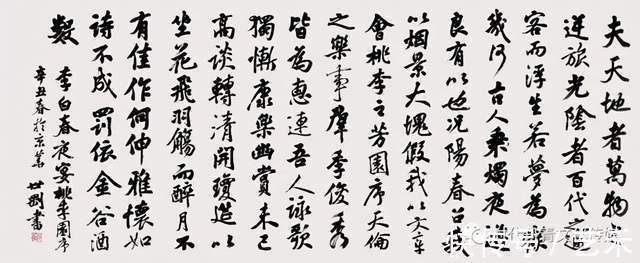 夫天地者萬物之
逆旅光陰者百代之過
客而浮生若夢為歡
幾何古人秉燭夜遊
良有以也況陽春召我
以烟景大塊假我以文章
會桃李之芳園序天倫
之樂事羣季俊秀
皆為惠連吾人詠歌
獨慚康樂幽賞未已
高談轉清開瓊筵以
坐花飛羽觴而醉月不
有佳作何伸雅懷如
詩不成罰依金谷酒
數
李白春夜宴桃李園序
辛丑春於京華 世剛書